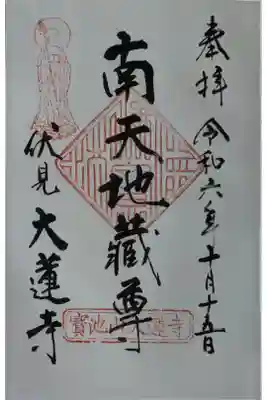 奉拝 令和六年十月十五日
南天地蔵尊
伏見 大蓮寺